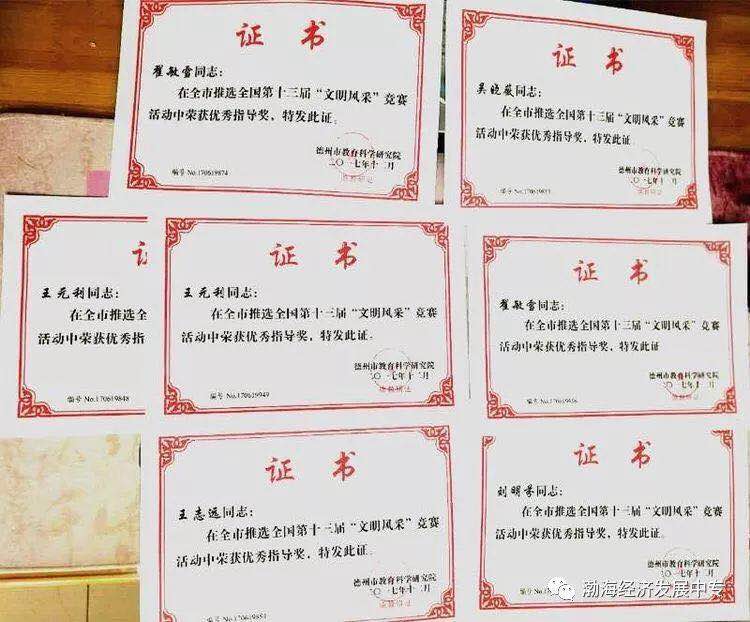 证书
翟敏雪同志：
在全市推选全国第十三届“文明风采”竞赛
活动中荣获优秀指导奖，特发此证。
德州市教育科学研究院
二〇一七年十二月
编号 No.170619874
证书
吴晓薇同志：
在全市推选全国第十三届“文明风采”竞赛
活动中荣获优秀指导奖，特发此证。
德州市教育科学研究院
二〇一七年十二月
王元利同志：
在全市推选
活动中荣获优秀指
编号 No.170619848
证书
王元利同志：
在全市推选全国第十三届“文明风采”竞赛
活动中荣获优秀指导奖，特发此证。
德州市教育科学研究院
二〇一七年十二月
编号 No.170619949
证书
翟敏雪同志：
在全市推选全国第十三届“文明风采”竞赛
活动中荣获优秀指导奖，特发此证
德州市教育科学研究院
二〇一七年十二月
证书
王志远同志：
在全市推选全国第十三届“文明风采”竞赛
活动中荣获优秀指导奖，特发此证。
德州市教育科学研究院
二〇一七年十二月
证书
刘明芬同志：
在全市推选全国第十三届“文明风采”竞赛
活动中荣获优秀指导奖，特发此证。
德州市教育科学研究院
二〇一七年十二月
渤海经济发展中专